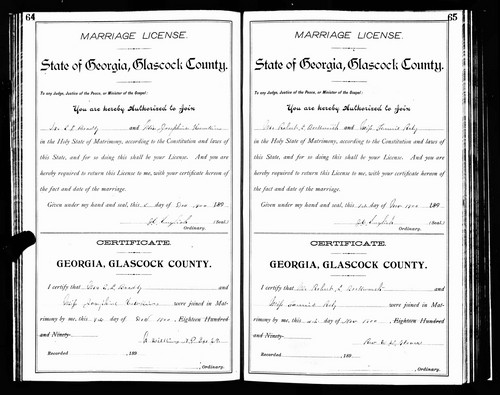 64
MARRIAGE LICENSE.
State of Georgia, Glascock County.
To any Judge, Justice of the Peace, or Minister of the Gospel:
You are hereby Authorized to Join
and Josephine
in the Holy State of Matrimony, according to the Constitution and laws of
this State, and for so doing this shall be your License. And you are
hereby required to return this License to me, with your certificate hereon of
the fact and date of the marriage.
Given under my hand and seal, this day of Dec 1900 189
(Seal.)
Ordinary.
CERTIFICATE.
GEORGIA, GLASCOCK COUNTY.
I certify that and
Miss Josephine were joined in Mat-
rimony by me, this day of Dec 1900, Eighteen Hundred
and Ninety-
Recorded , 189
, Ordinary.
65
MARRIAGE LICENSE.
State of Georgia, Glascock County.
To any Judge, Justice of the Peace, or Minister of the Gospel:
You are hereby Authorized to Join
Mr Robert L and Miss
in the Holy State of Matrimony, according to the Constitution and laws of
this State, and for so doing this shall be your License. And you are
hereby required to return this License to me, with your certificate hereon of
the fact and date of the marriage.
Given under my hand and seal, this day of Nov 1900 189
(Seal.)
Ordinary.
CERTIFICATE.
GEORGIA, GLASCOCK COUNTY.
I certify that Mr Robert L and
Miss were joined in Mat-
rimony by me, this day of Nov 1900, Eighteen Hundred
and Ninety-
Rev.
Recorded , 189
, Ordinary.